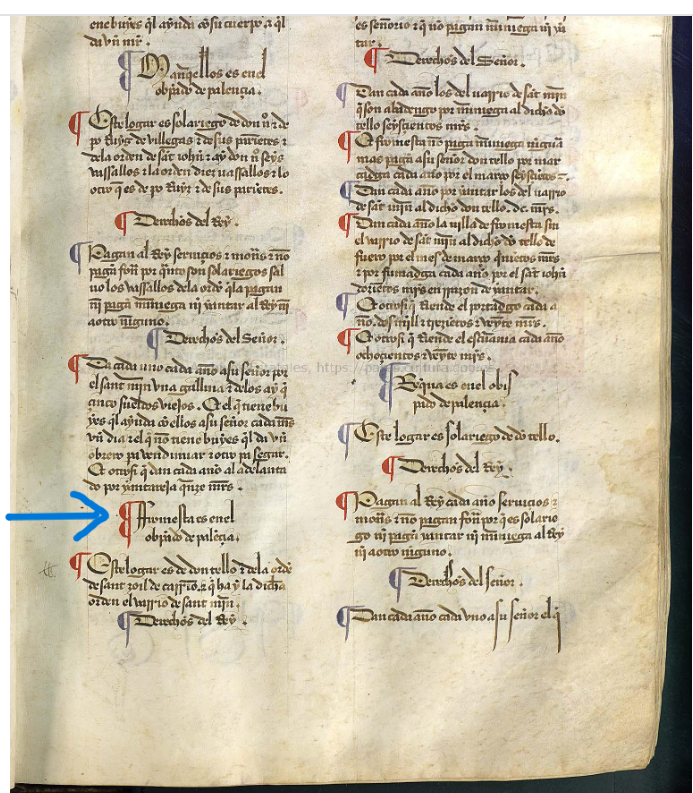 enebuyes q̃l ayuda cõ su cuerpo a q̃l
da vn mr̃.
Manq̃llos es en el
obp̃ado de palençia.
Este logar es solariego de don nũ de
po Ruyz de villegas τ de sus parietes τ
dela orden de sãt iohñ τ ay don ñ seys
vassallos τ la orden diez vassallos τ lo
otro q̃ es de po Ruyz τ de sus parietes.
Derechos del Rey.
Pagan al Rey seruiçios τ mon̄s τ nõ
pagã fon̄ por q̃nto son solariegos sal
uo los vassallos dela ordẽ q̃ la pagan
nĩ pagã mñiega ni yantar al Rey nĩ
a otro niguno.
Derechos del Señor.
Da cada uno cada año a su señor por
el sant mĩn vna gallina τ delos ay q̃
çinco sueldos viejos. Et el q̃ tiene bu
yes q̃l ayuda cõ ellos a su señor cada mẽs
vñ dia τ el q̃ nõ tiene buyes q̃l da vñ
obrero pa vendimiar τ otro pa segar.
Et otrosi q̃ dan cada año al adelanta
do por yantareja q̃nze mrs̃.
Ffromesta es en el
obp̃ado de palẽçia.
Este logar es de don tello τ dela ordẽ
de sant zoil de carriõ τ q̃ ha y la dicha
orden el varrio de sant mĩn.
Derechos del Rey.
es señorio τ q̃ nõ pagan mñiega ni yã
tar.
Derechos del Señor.
Dan cada año los del varrio de sãt mĩn
q̃ son abadengo por mñiega al dicho dõ
tello seysçientos mrs̃.
Et fromesta nõ paga mñiega niguã
mas pagã a su señor don tello por mar
tãdga cada año por el março seysçiẽtos.
Dan cada año por yantar los del varrio
de sãt mĩn al dicho don tello .dc. mrs̃.
Dan cada año la villa de fromesta sin
el varrio de sãt mĩn al dicho dõ tello de
fuero por el mes de março q̃niẽtos mrs̃
τ por fumadga cada año por el sãt iohñ
doziẽtos mrs̃ en razon de yantar.
Et otrosi q̃ Rende el portadgo cada a
ño. dos mill τ trezietos τ veynte mrs̃.
Et otrosi q̃ Rende el escriuania cada año
ochoçientos τ veynte mrs̃.
Requa es en el obis
pado de palençia.
Este logar es solariego de dõ tello.
Derechos del Rey.
Pagan al Rey cada año seruiçios τ
mon̄s τ nõ pagan fon̄ por q̃ es solarie
go ni pagã yantar nĩ mñiega al Rey
nĩ a otro niguno.
Derechos del señor.
Dan cada año cada vno a su señor el q̃